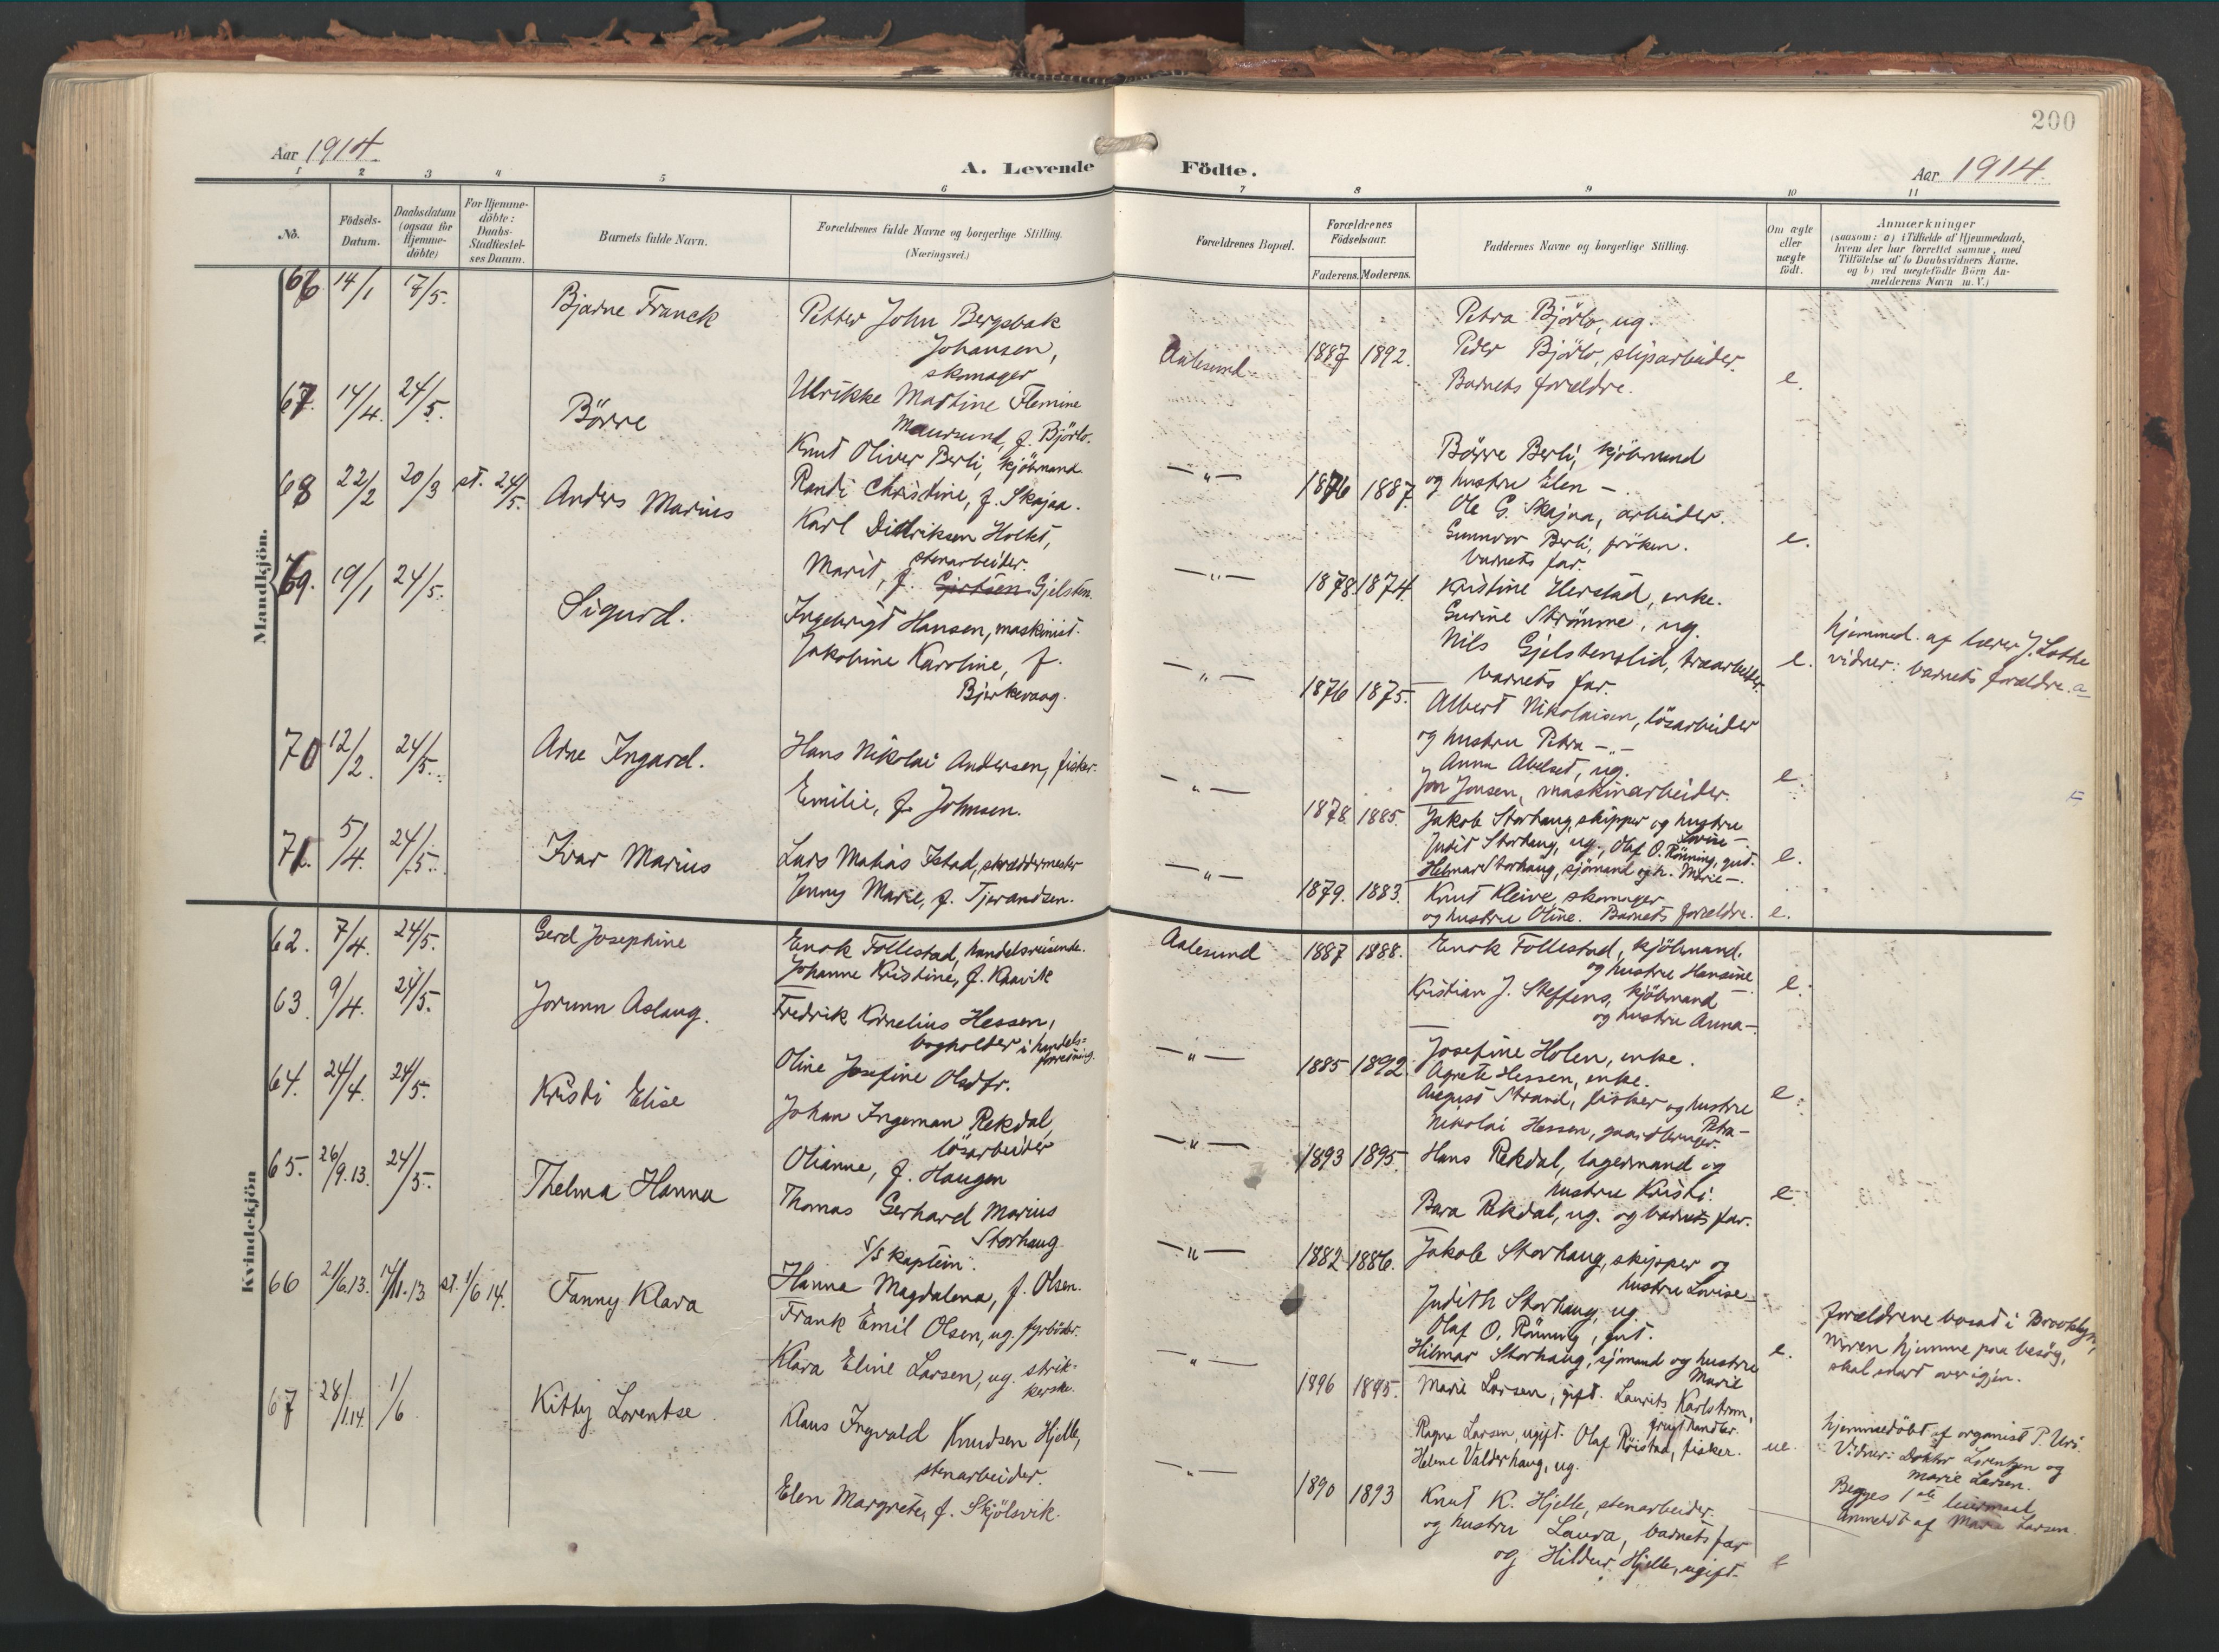 200
Aar 1914.
A. Levende Födte.
Aar 1914.
1 2 3 4 5 6 7 8 9 10 11
No.
Födsels-
Datum.
Daabsdatum
(ogsaa for
Hjemme-
döbte)
For Hjemme-
döbte:
Daabs-
Stadfæstel-
ses Datum.
Barnets fulde Navn.
Forældrenes fulde Navne og borgerlige Stilling.
(Næringsvei.)
Forældrenes Bopæl.
Forældrenes
Födselsaar.
Faderens. Moderens.
Faddernes Navne og borgerlige Stilling.
Om ægte
eller
uægte
födt.
Anmærkninger
(saasom: a) i Tilfælde af Hjemmedaab,
hvem der har forrettet samme, med
Tilföielse af to Daabsvidners Navne,
og b) ved uægtefödte Börn An-
melderens Navn m. V.)
Mandkjön.
66. 14/1 17/5. Bjarne Franck
Petter John Bergsbak
Johansen,
skomager
Ulrikke Martine Flemine
Maursund, f. Björlo.
Aalesund 1887 1892.
Petra Björlo, ug.
Peder Björlo, sliparbeider.
Barnets forældre.
e.
67. 14/4. 24/5. Börre
Knut Oliver Berli, kjöbmand
Randi Christine, f. Skajaa.
—„— 1876 1887.
Börre Berli, kjöbmand
og hustru Elen —.
Ole G. Skajaa, arbeider.
Gunnvor Berli, fröken.
barnets far.
e.
68 22/2 20/3 st. 24/5. Anders Marius
Karl Didriksen Holset,
stenarbeider.
Marit, f. Gjertsen Gjelsten.
—„— 1878. 1874
Kristine Herstad, enke.
Gurine Strömme, ug.
Nils Gjelstenslid, træarbeider.
barnets far.
e.
hjemmed. af lærer J. Lothe
vidner: barnets forældre.
69. 19/1 24/5. Sigurd.
Ingebrigt Hansen, maskinist.
Jakobine Karoline, f.
Bjerkevaag.
—„— 1876 1875.
Albert Nikolaisen, lösarbeider
og hustru Petra —„—
Anna Abelset, ug.
Jon Jonsen, maskinarbeider.
e.
70 12/2. 24/5. Arne Ingard.
Hans Nikolai Andersen, fisker.
Emilie, f. Johnsen.
„— 1878. 1885.
Jakob Storhaug, skipper og hustru
Lovise —.
Judit Storhaug, ug., Olaf O. Rönning, gut.
Helmar Storhaug, sjömand og h. Marie —.
e.
71. 5/4. 24/5. Ivar Marius
Lars Mathias Istad, skræddermester
Jenny Marie, f. Tjerandsen.
—„— 1879. 1883.
Knut Kleive, skomager
og hustru Oline. Barnets forældre.
e.
Kvindekjön
62. 7/4. 24/5. Gerd Josephine
Enok Follestad, handelsreisende.
Johanne Kristine, f. Kaavik
Aalesund 1887 1888.
Enok Follestad, kjöbmand.
og hustru Hansine
Kristian J. Steffens, kjöbmand
og hustru Anna —.
e.
63 9/4. 24/5. Jorunn Aslaug.
Fredrik Kornelius Hessen,
bogholder i handels-
forretning.
Oline Josefine Olsdtr.
—„— 1885 1892.
Josefine Holen, enke.
Agnete Hessen, enke.
August Strand, fisker og hustru
Petra —
Nikolai Hessen, gaardbruger.
e.
64. 24/4. 24/5. Kristi Elise
Johan Ingeman Rekdal,
lösarbeider
Olianne, f. Haugen
—„— 1893 1895
Hans Rekdal, lagermand og
hustru Kristi.
Bara Rekdal, ug. og barnets far.
e.
65. 26/9.13. 24/5. Thelma Hanna
Thomas Gerhard Marius
Storhaug
s/s kaptein.
Hanna Magdalena, f. Olsen.
—„— 1882 1886.
Jakob Storhaug, skipper og
hustru Lovise —
Judith Storhaug, ug.
Olaf O. Rönning, gut.
Hilmar Storhaug, sjömand og hustru
Marie
e.
forældrene bosat i Brooklyn,
moren hjemme paa besög,
skal snart over igjen.
66 21/6.13. 17/11.13 st. 1/6 14. Fanny Klara
Frank Emil Olsen, ug. fyrböder.
Klara Eline Larsen, ug. strik-
kerske.
—„— 1896 1895.
Marie Larsen, gift. Laurits Karlstrøm,
frugthandler.
Ragna Larsen, ugift. Olaf Röistad, fisker.
Helene Valderhaug, ug.
ue.
hjemmedöbt af organist P. Uri.
Vidner: Doktor Lorentzen og
Marie Larsen.
Begges 1ste leiermaal
Anmeldt af Marie Larsen.
67 28/1.14. 1/6 Kitty Lorentse
Klaus Ingvald Knudsen Hjelle,
stenarbeider.
Elen Margrete, f. Skjölsvik.
—„— 1890 1893
Knut K. Hjelle, stenarbeider.
og hustru Laura, barnets far
og Hildur Hjelle, ugift.
e